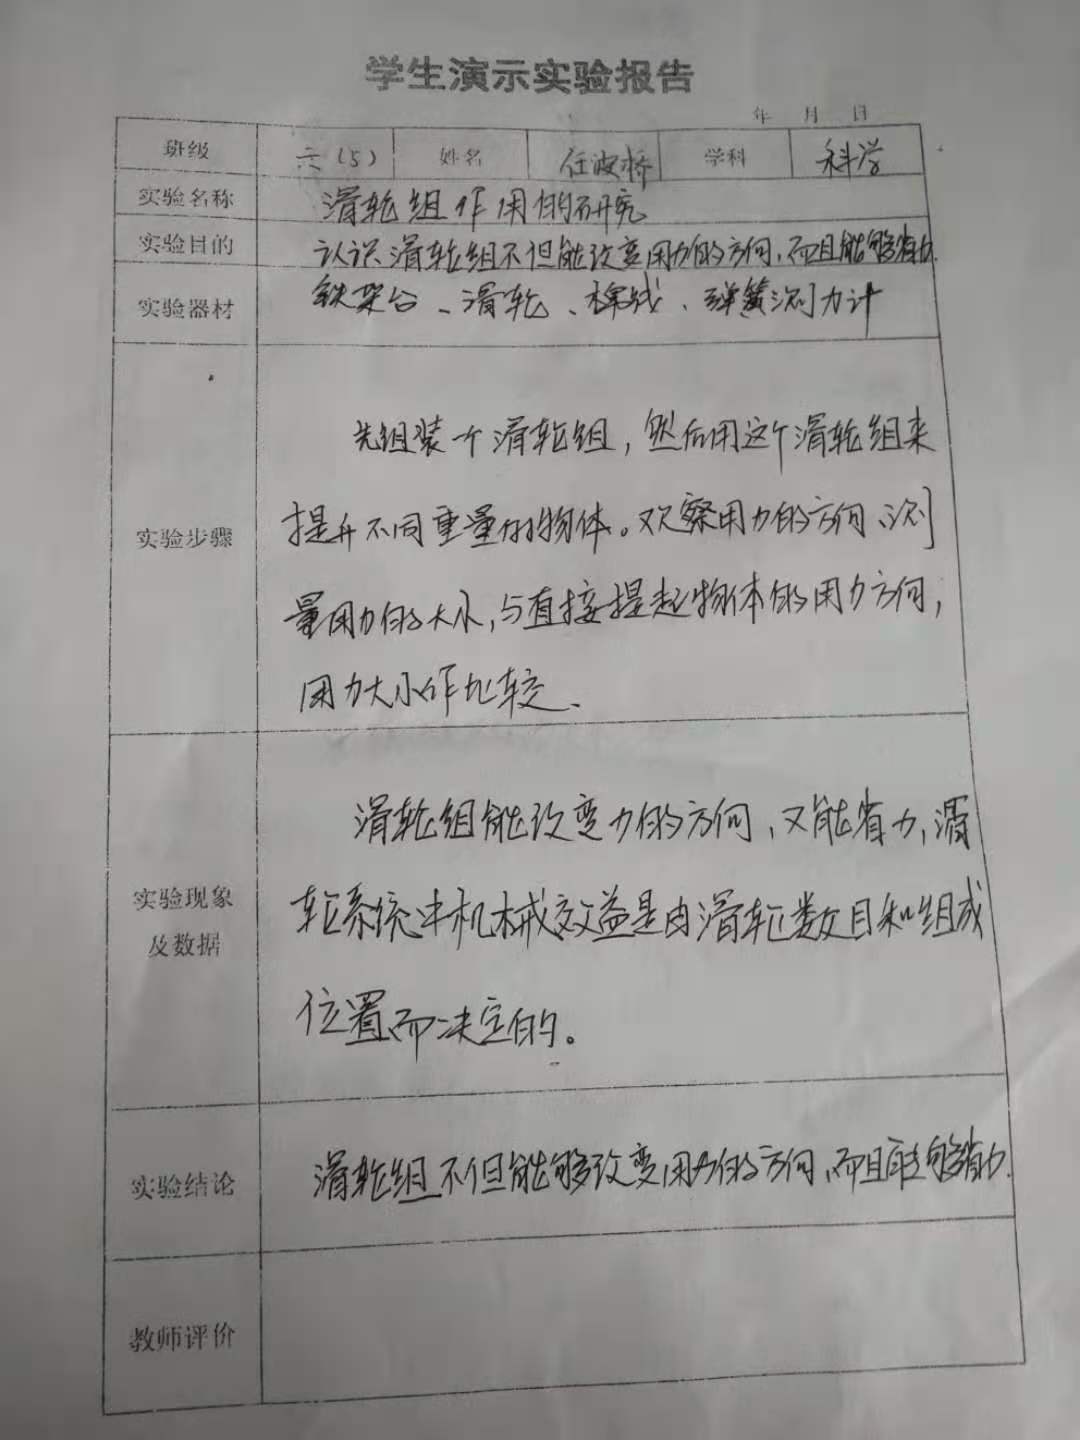 学生演示实验报告
年 月 日
班级 六(5) 姓名 任波桥 学科 科学
实验名称 滑轮组作用的研究
实验目的 认识滑轮组不但能改变用力的方向,而且能够省力.
实验器材 铁架台、滑轮、棉线、弹簧测力计
先组装一个滑轮组,然后用这个滑轮组来
提升不同重量的物体。观察用力的方向、测
实验步骤
量用力的大小,与直接提起物体的用力方向,
用力大小作比较、
滑轮组能改变力的方向,又能省力,滑
实验现象
及数据
轮系统中机械效益是由滑轮数目和组成
位置而决定的。
实验结论 滑轮组不但能够改变用力的方向,而且能够省力.
教师评价